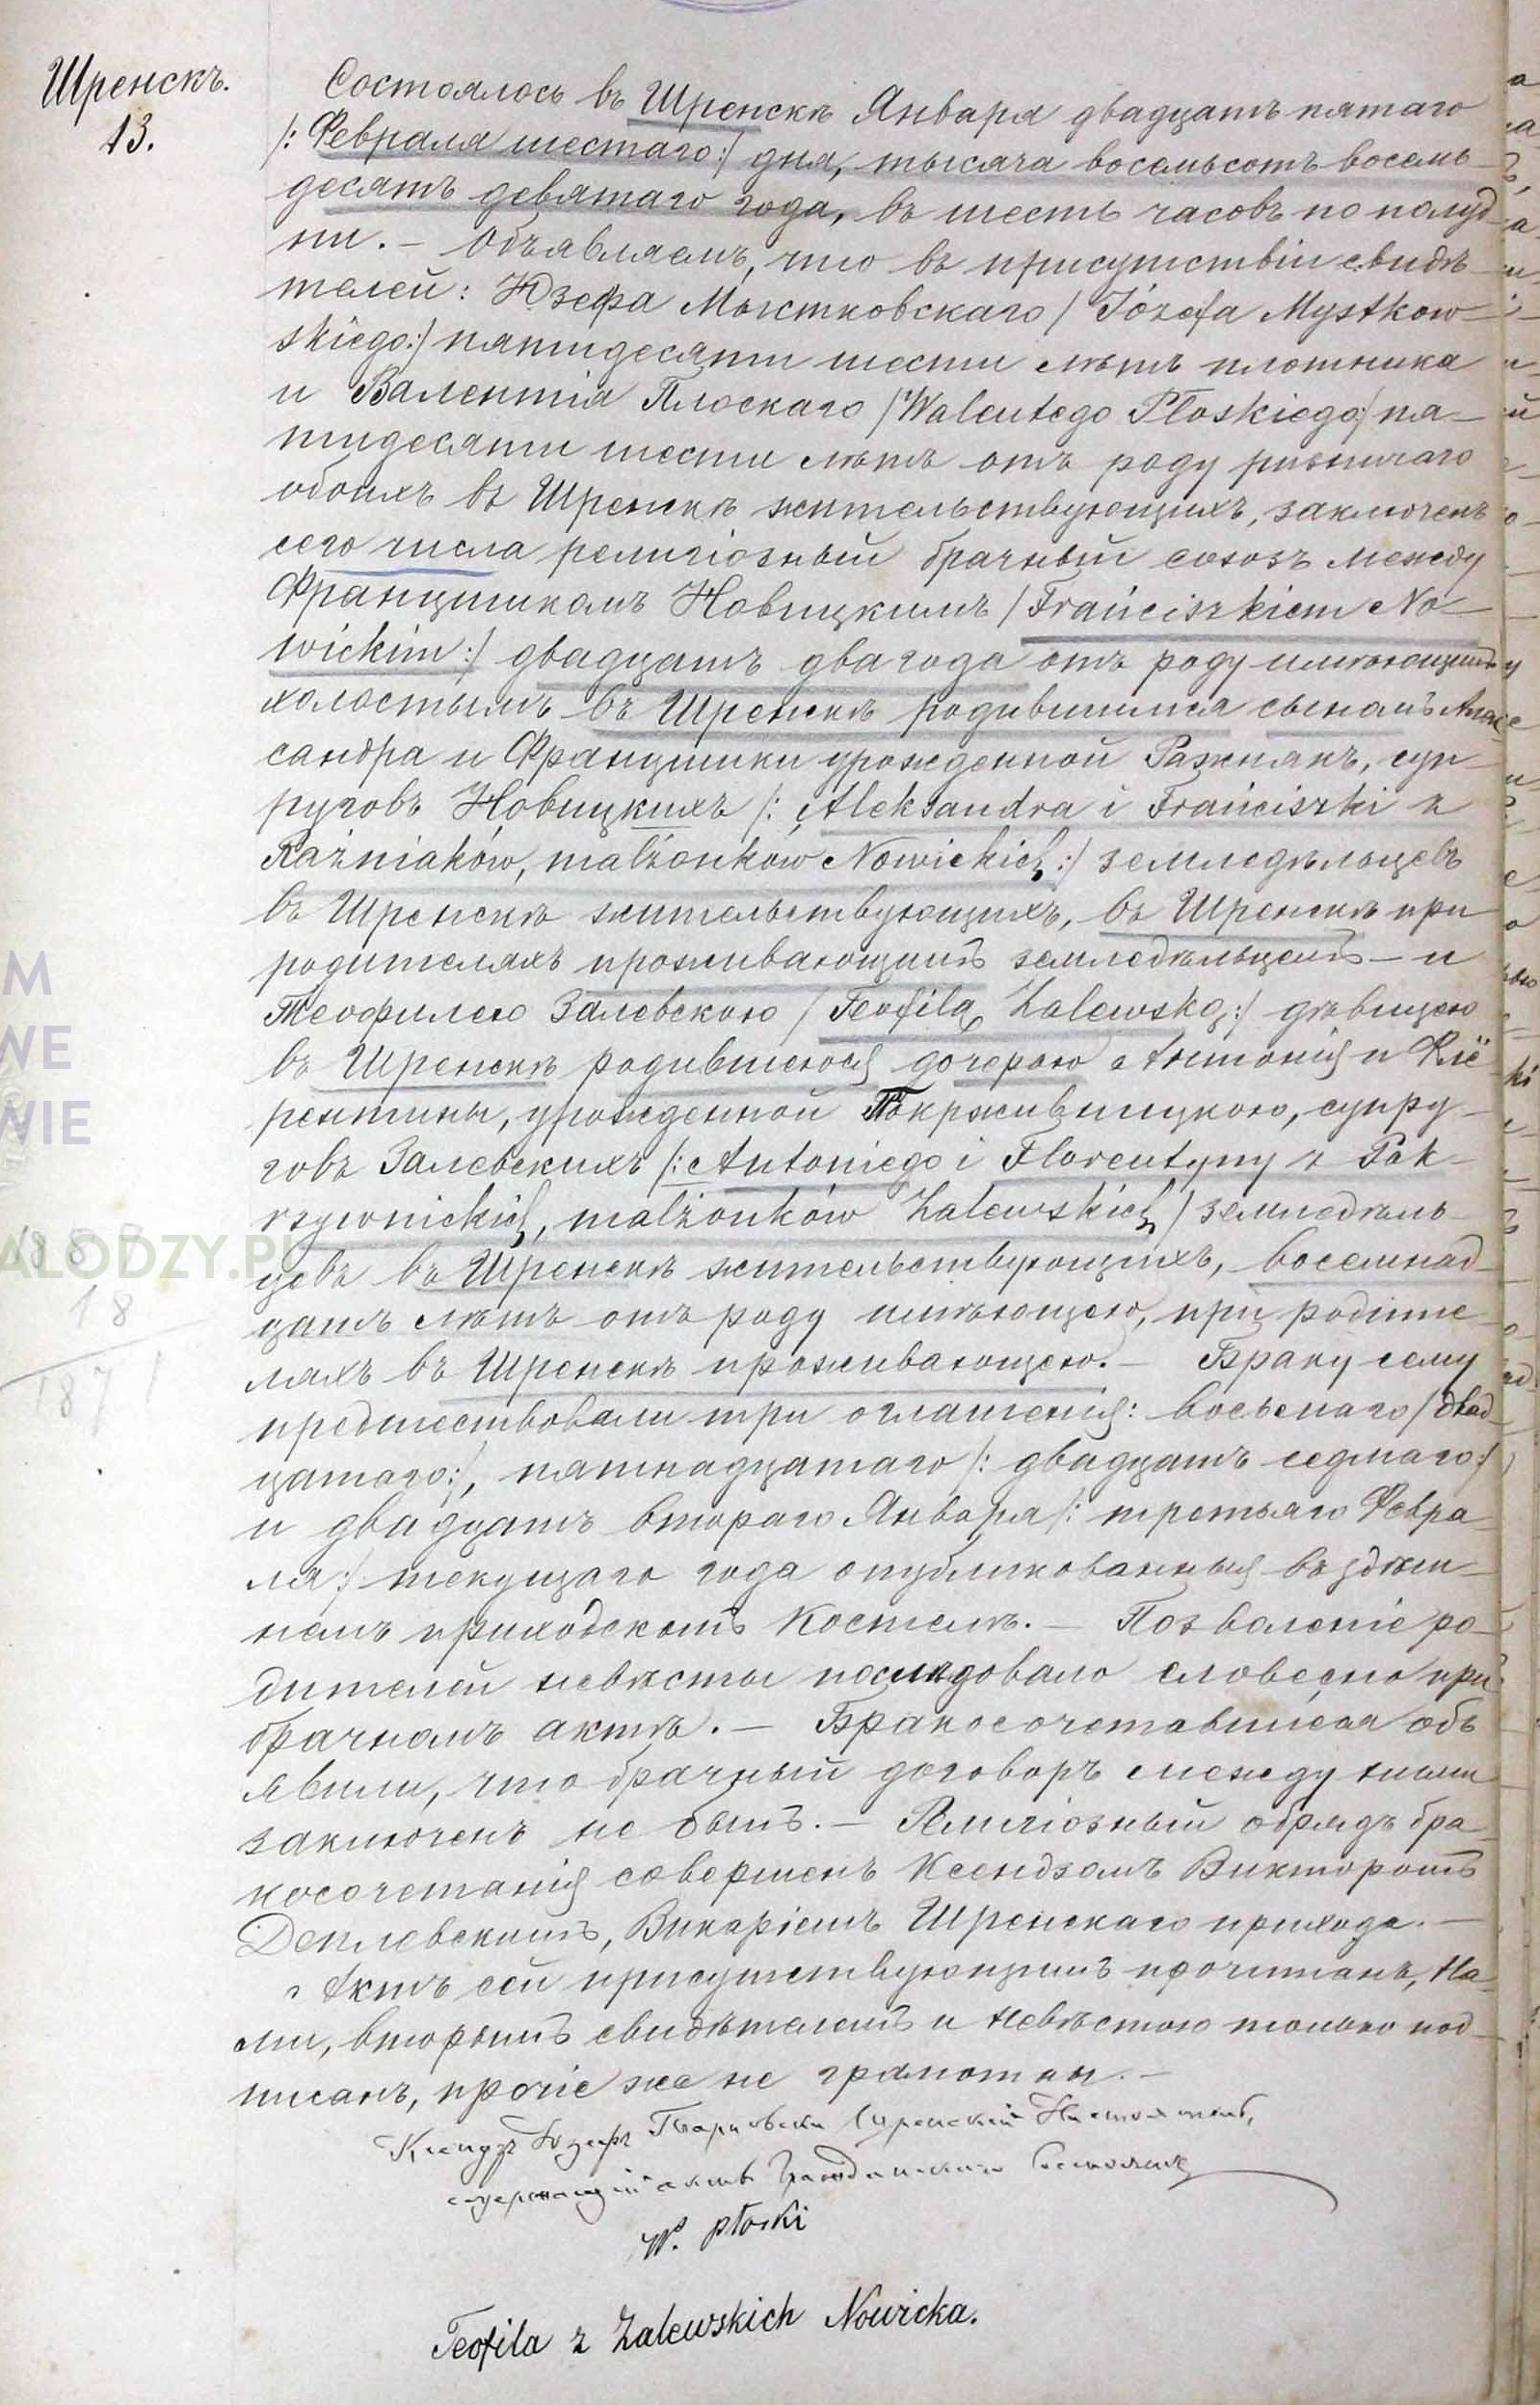 Шренскъ.
13.
Состоялось въ Шренскѣ Января двадцать пятаго
/: Февраля шестаго :/ дня, тысяча восемьсотъ восемь-
десятъ девятаго года, въ шесть часовъ по полуд-
ни. – Объявляемъ, что въ присутствіи свидѣ-
телей: Юзефа Мыстковскаго / Józefa Mystkow-
skiego :/ пятидесяти шести лѣтъ плотника
и Валентія Плоскаго / Walentego Płoskiego :/ пя-
тидесяти шести лѣтъ отъ роду
обоихъ въ Шренскѣ жительствующихъ, заключенъ
сего числа религіозный брачный союзъ между
Францишкомъ Новицкимъ / Franciszkiem No-
wickim :/ двадцать два года отъ роду имѣющимъ
холостымъ въ Шренскѣ родившимся сыномъ Алек-
сандра и Францишки урожденной Разнякъ, суп-
руговъ Новицкихъ /: Aleksandra i Franciszki z
Raźniaków, małżonków Nowickich :/ земледѣльцевъ
въ Шренскѣ жительствующихъ, въ Шренскѣ при
родителяхъ проживающимъ земледѣльцемъ – и
Теофилею Залевскою / Teofilą Zalewską :/ дѣвицею
въ Шренскѣ родившеюся дочерою Антонія и Флё-
рентины, урожденной Покрживницкою, супру-
говъ Залевскихъ /: Antoniego i Florentyny z Pok-
rzywnickich, małżonków Zalewskich / земледѣль-
цевъ въ Шренскѣ жительствующихъ, восемнад-
цать лѣтъ отъ роду имѣющею, при родите-
ляхъ въ Шренскѣ проживающею. – Браку сему
предшествовали три оглашенія: восьмаго / двад-
цатаго :/, пятнадцатаго /: двадцать седмаго :/
и двадцать втораго Января /: третьяго Февра-
ля :/ текущаго года опубликованныя въ здѣш-
немъ приходскомъ Костелѣ. – Позволеніе ро-
дителей невѣсты послѣдовало словесно при
брачномъ актѣ. – Бракосочетавшіеся объ-
явили, что брачный договоръ между ними
заключенъ не былъ. – Религіозный обрядъ бра-
косочетанія совершенъ Ксендзомъ Викторомъ
Деплевскимъ, Викаріемъ Шренскаго прихода. –
Актъ сей присутствующимъ прочитанъ, На-
ми, вторымъ свидѣтелемъ и Невѣстою только под-
писанъ, прочіе же не грамотны. –
Ксендзъ Юзефъ Шренскій Настоятель,
содержащій актъ Гражданскаго Состоянія
W. Płoski
Teofila z Zalewskich Nowicka.
188
18
1871